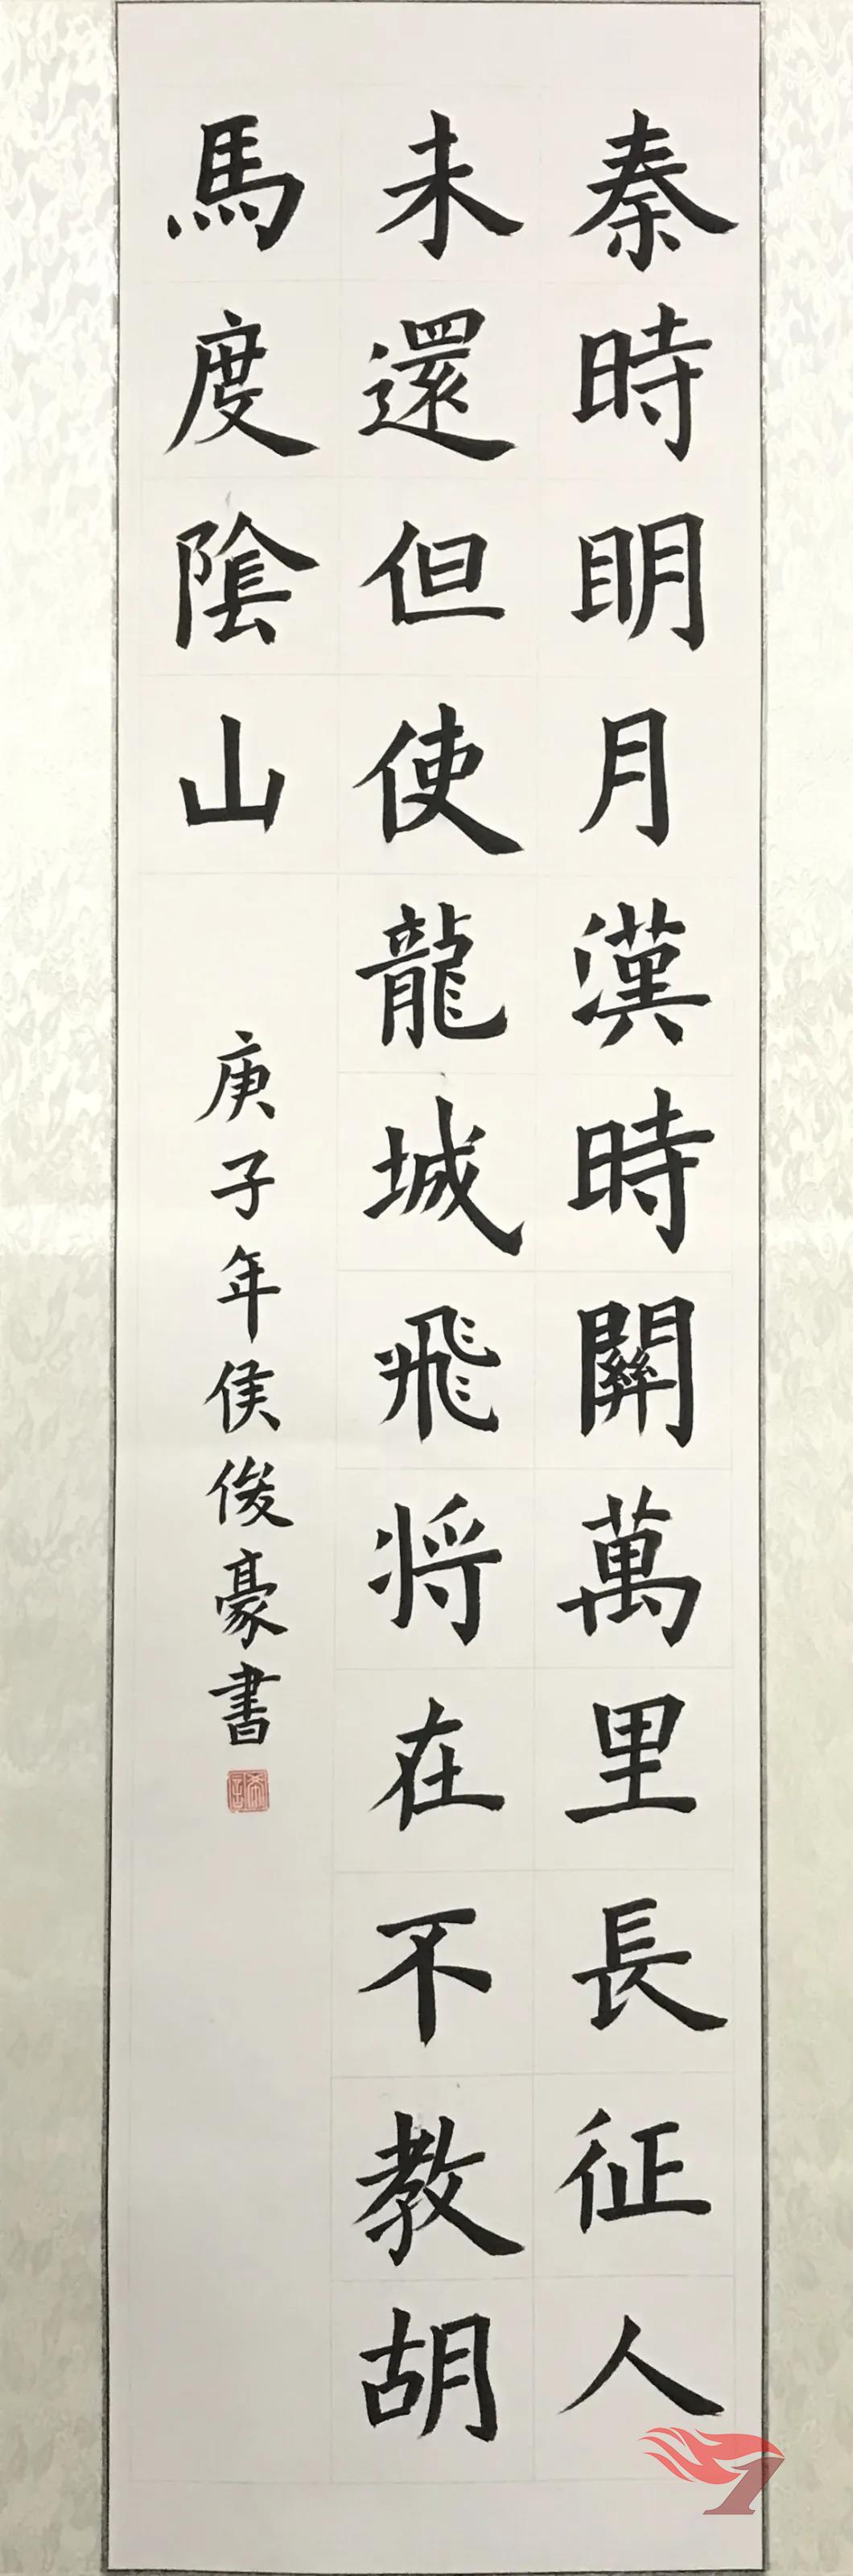 秦時明月漢時關萬里長征人
未還但使龍城飛将在不教胡
馬度陰山
庚子年侯俊豪書